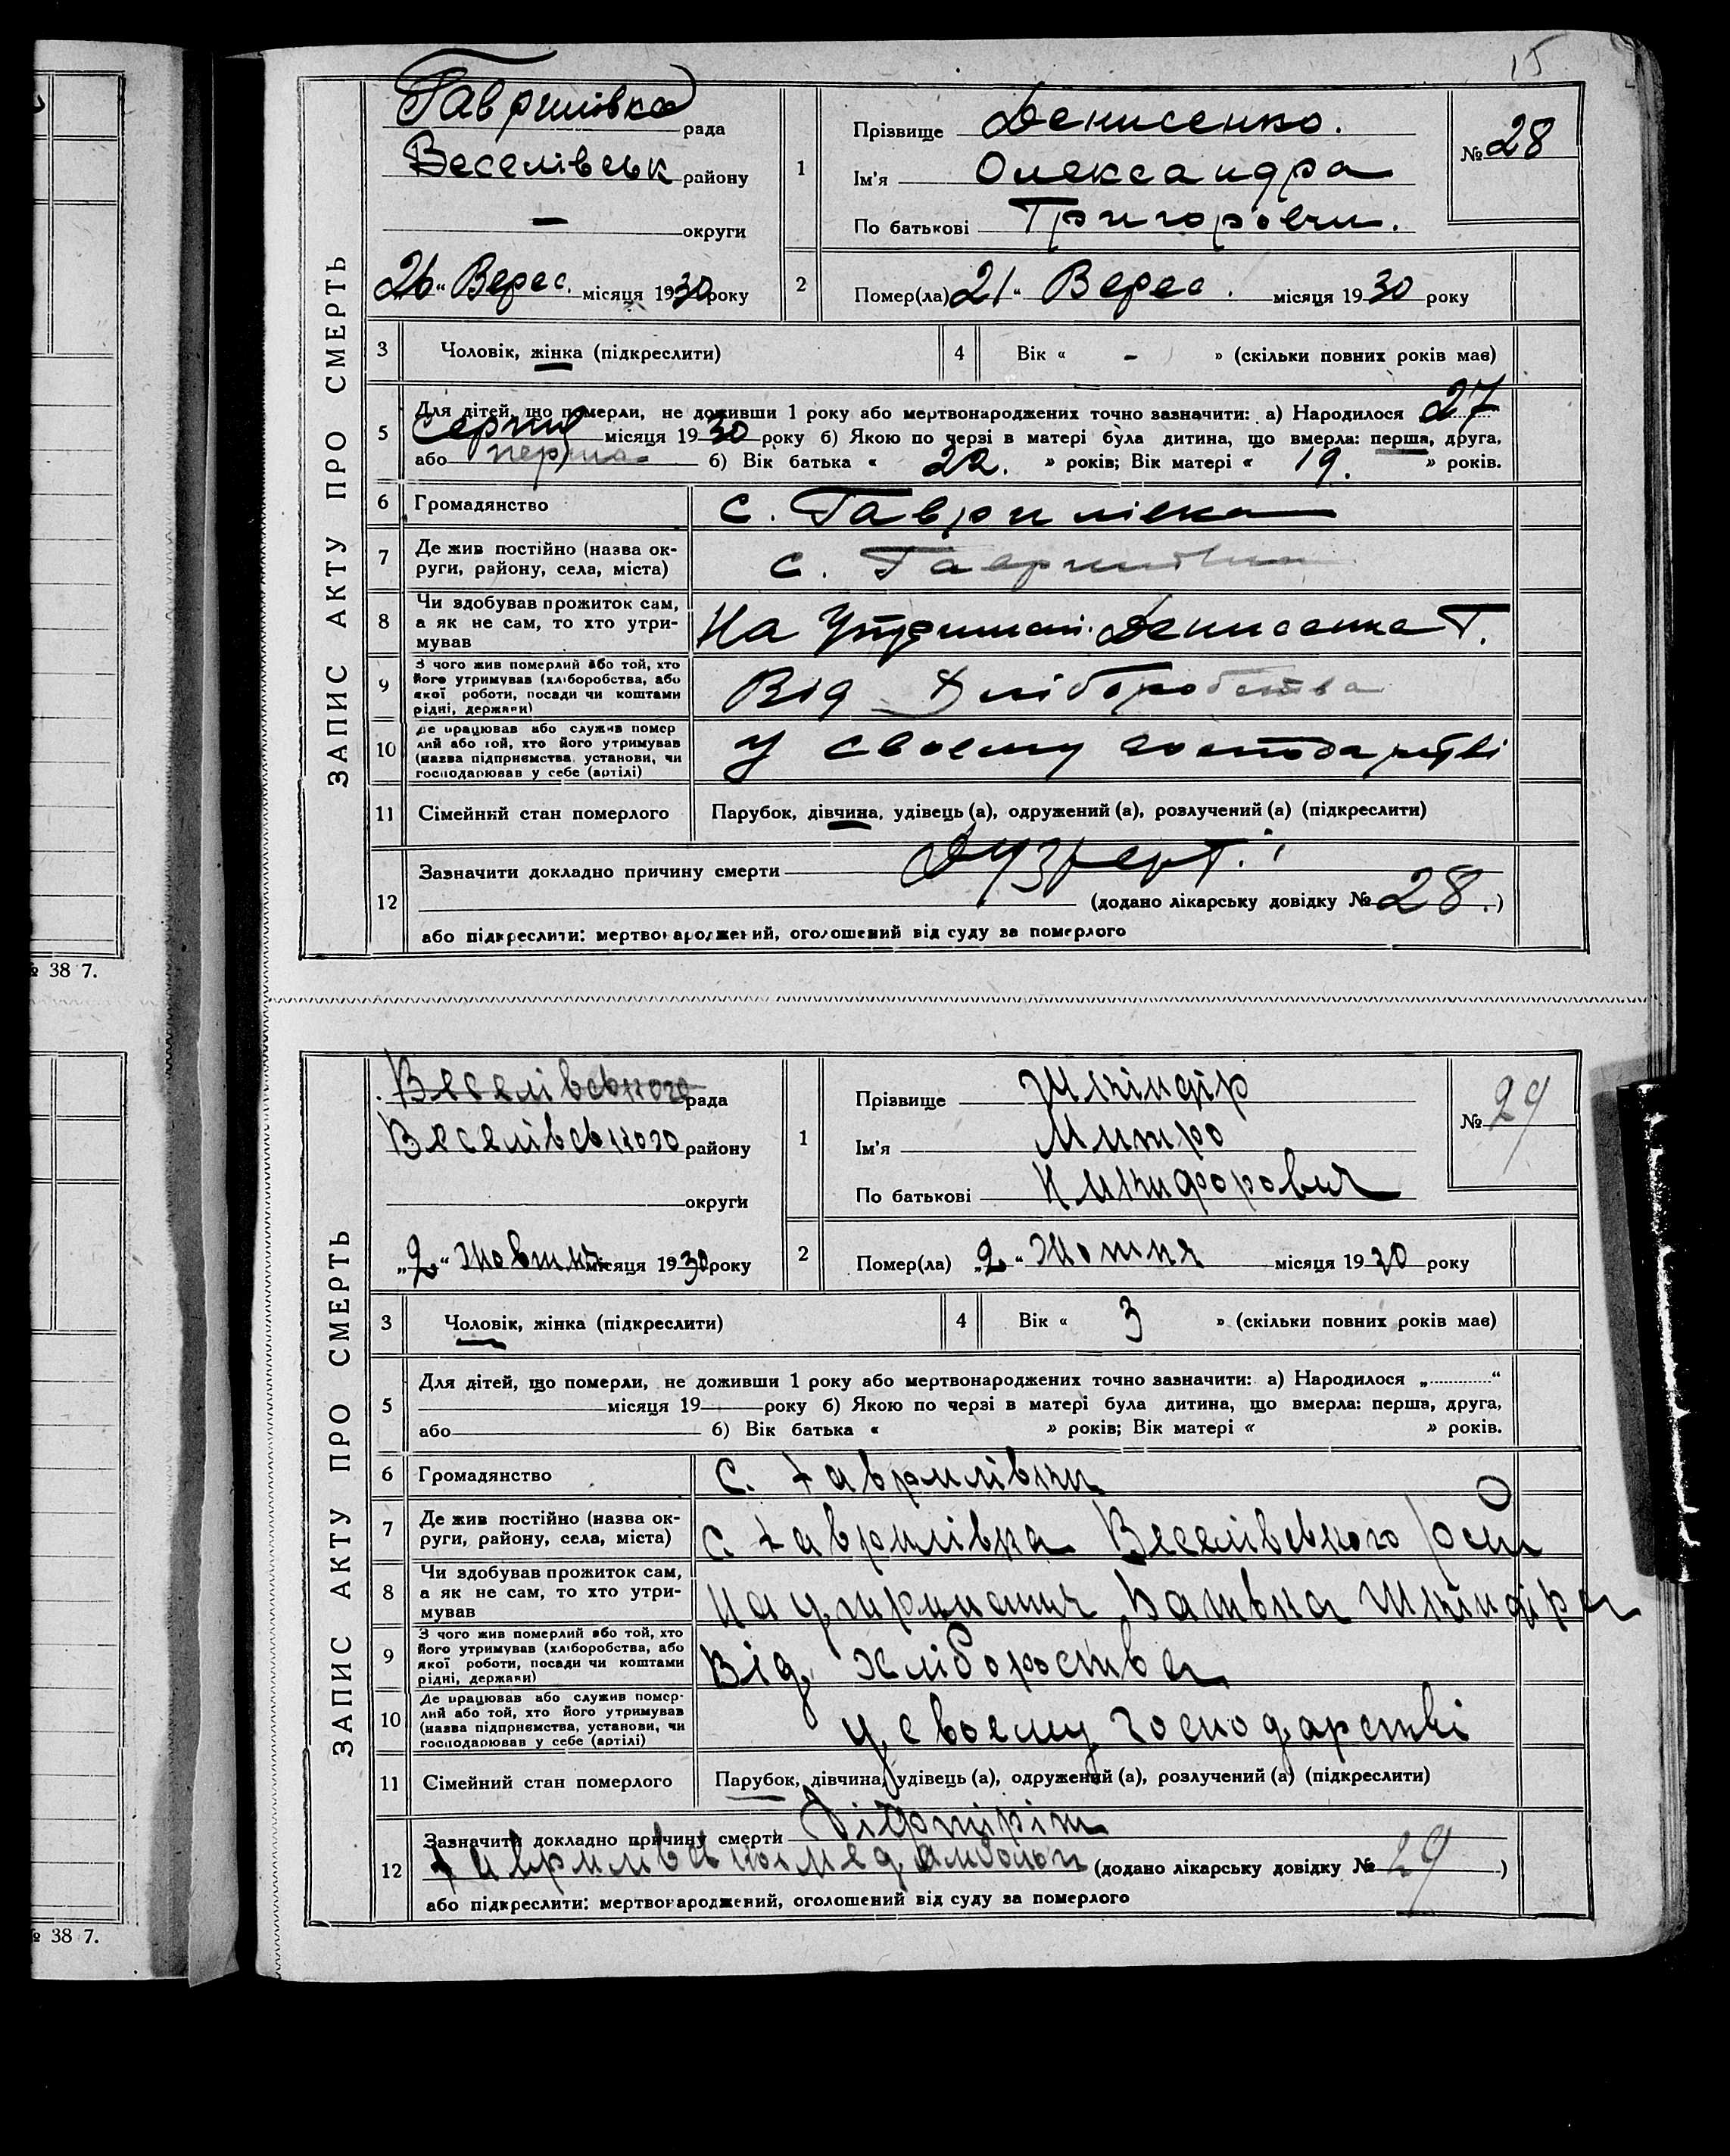 15
ЗАПИС АКТУ ПРО СМЕРТЬ
Гаврилівка рада
Веселівськ району
— округи
26" Верес. місяця 1930 року
1
Прізвище Денисенко.
Ім'я Олександра
По батькові Григоровни.
№ 28
2
Помер(ла) 21" Верес. місяця 1930 року
3 Чоловік, жінка (підкреслити)
4 Вік « - » (скільки повних років має)
5 Для дітей, що померли, не доживши 1 року або мертвонароджених точно зазначити: а) Народилося 27
Серпня місяця 1930 року б) Якою по черзі в матері була дитина, що вмерла: перша, друга,
або перша б) Вік батька « 22. » років; Вік матері « 19. » років.
6 Громадянство с. Гаврилівка
7 Де жив постійно (назва ок-
руги, району, села, міста) с. Гаврилівка
8 Чи здобував прожиток сам,
а як не сам, то хто утри-
мував На Утриман. Денисенка Г.
9 З чого жив померлий або той, хто
його утримував (хліборобства, або
якої роботи, посади чи коштами
рідні, держави) Від Хліборобства
10 Де працював або служив помер
лий або той, хто його утримував
(назва підприємства, установи, чи
господарював у себе (артілі) у своєму господарстві
11 Сімейний стан померлого Парубок, дівчина, удівець (а), одружений (а), розлучений (а) (підкреслити)
12 Зазначити докладно причину смерти
(додано лікарську довідку № 28.)
або підкреслити: мертвонароджений, оголошений від суду за померлого
№ 38 7.
ЗАПИС АКТУ ПРО СМЕРТЬ
Веселівського рада
Веселівського району
округи
„2" Жовтня місяця 1930 року
1
Прізвище Шкіндір
Ім'я Митро
По батькові Никифорович
№ 29
2
Помер(ла) „2" Жотня місяця 1930 року
3 Чоловік, жінка (підкреслити)
4 Вік « 3 » (скільки повних років має)
5 Для дітей, що померли, не доживши 1 року або мертвонароджених точно зазначити: а) Народилося „ “
місяця 19 року б) Якою по черзі в матері була дитина, що вмерла: перша, друга,
або б) Вік батька « » років; Вік матері « » років.
6 Громадянство с. Гаврилівки
7 Де жив постійно (назва ок-
руги, району, села, міста) с Гаврилівка Веселівського
8 Чи здобував прожиток сам,
а як не сам, то хто утри-
мував На утриманя Батька Шкіндіра
9 З чого жив померлий або той, хто
його утримував (хліборобства, або
якої роботи, посади чи коштами
рідні, держави) Від хлібороства
10 Де працював або служив помер-
лий або той, хто його утримував
(назва підприємства, установи, чи
господарював у себе (артілі) у своєму господарстві
11 Сімейний стан померлого Парубок, дівчина, удівець (а), одружений (а), розлучений (а) (підкреслити)
12 Зазначити докладно причину смерти Діфтиріт
(додано лікарську довідку № 29)
або підкреслити: мертвонароджений, оголошений від суду за померлого
№ 38 7.